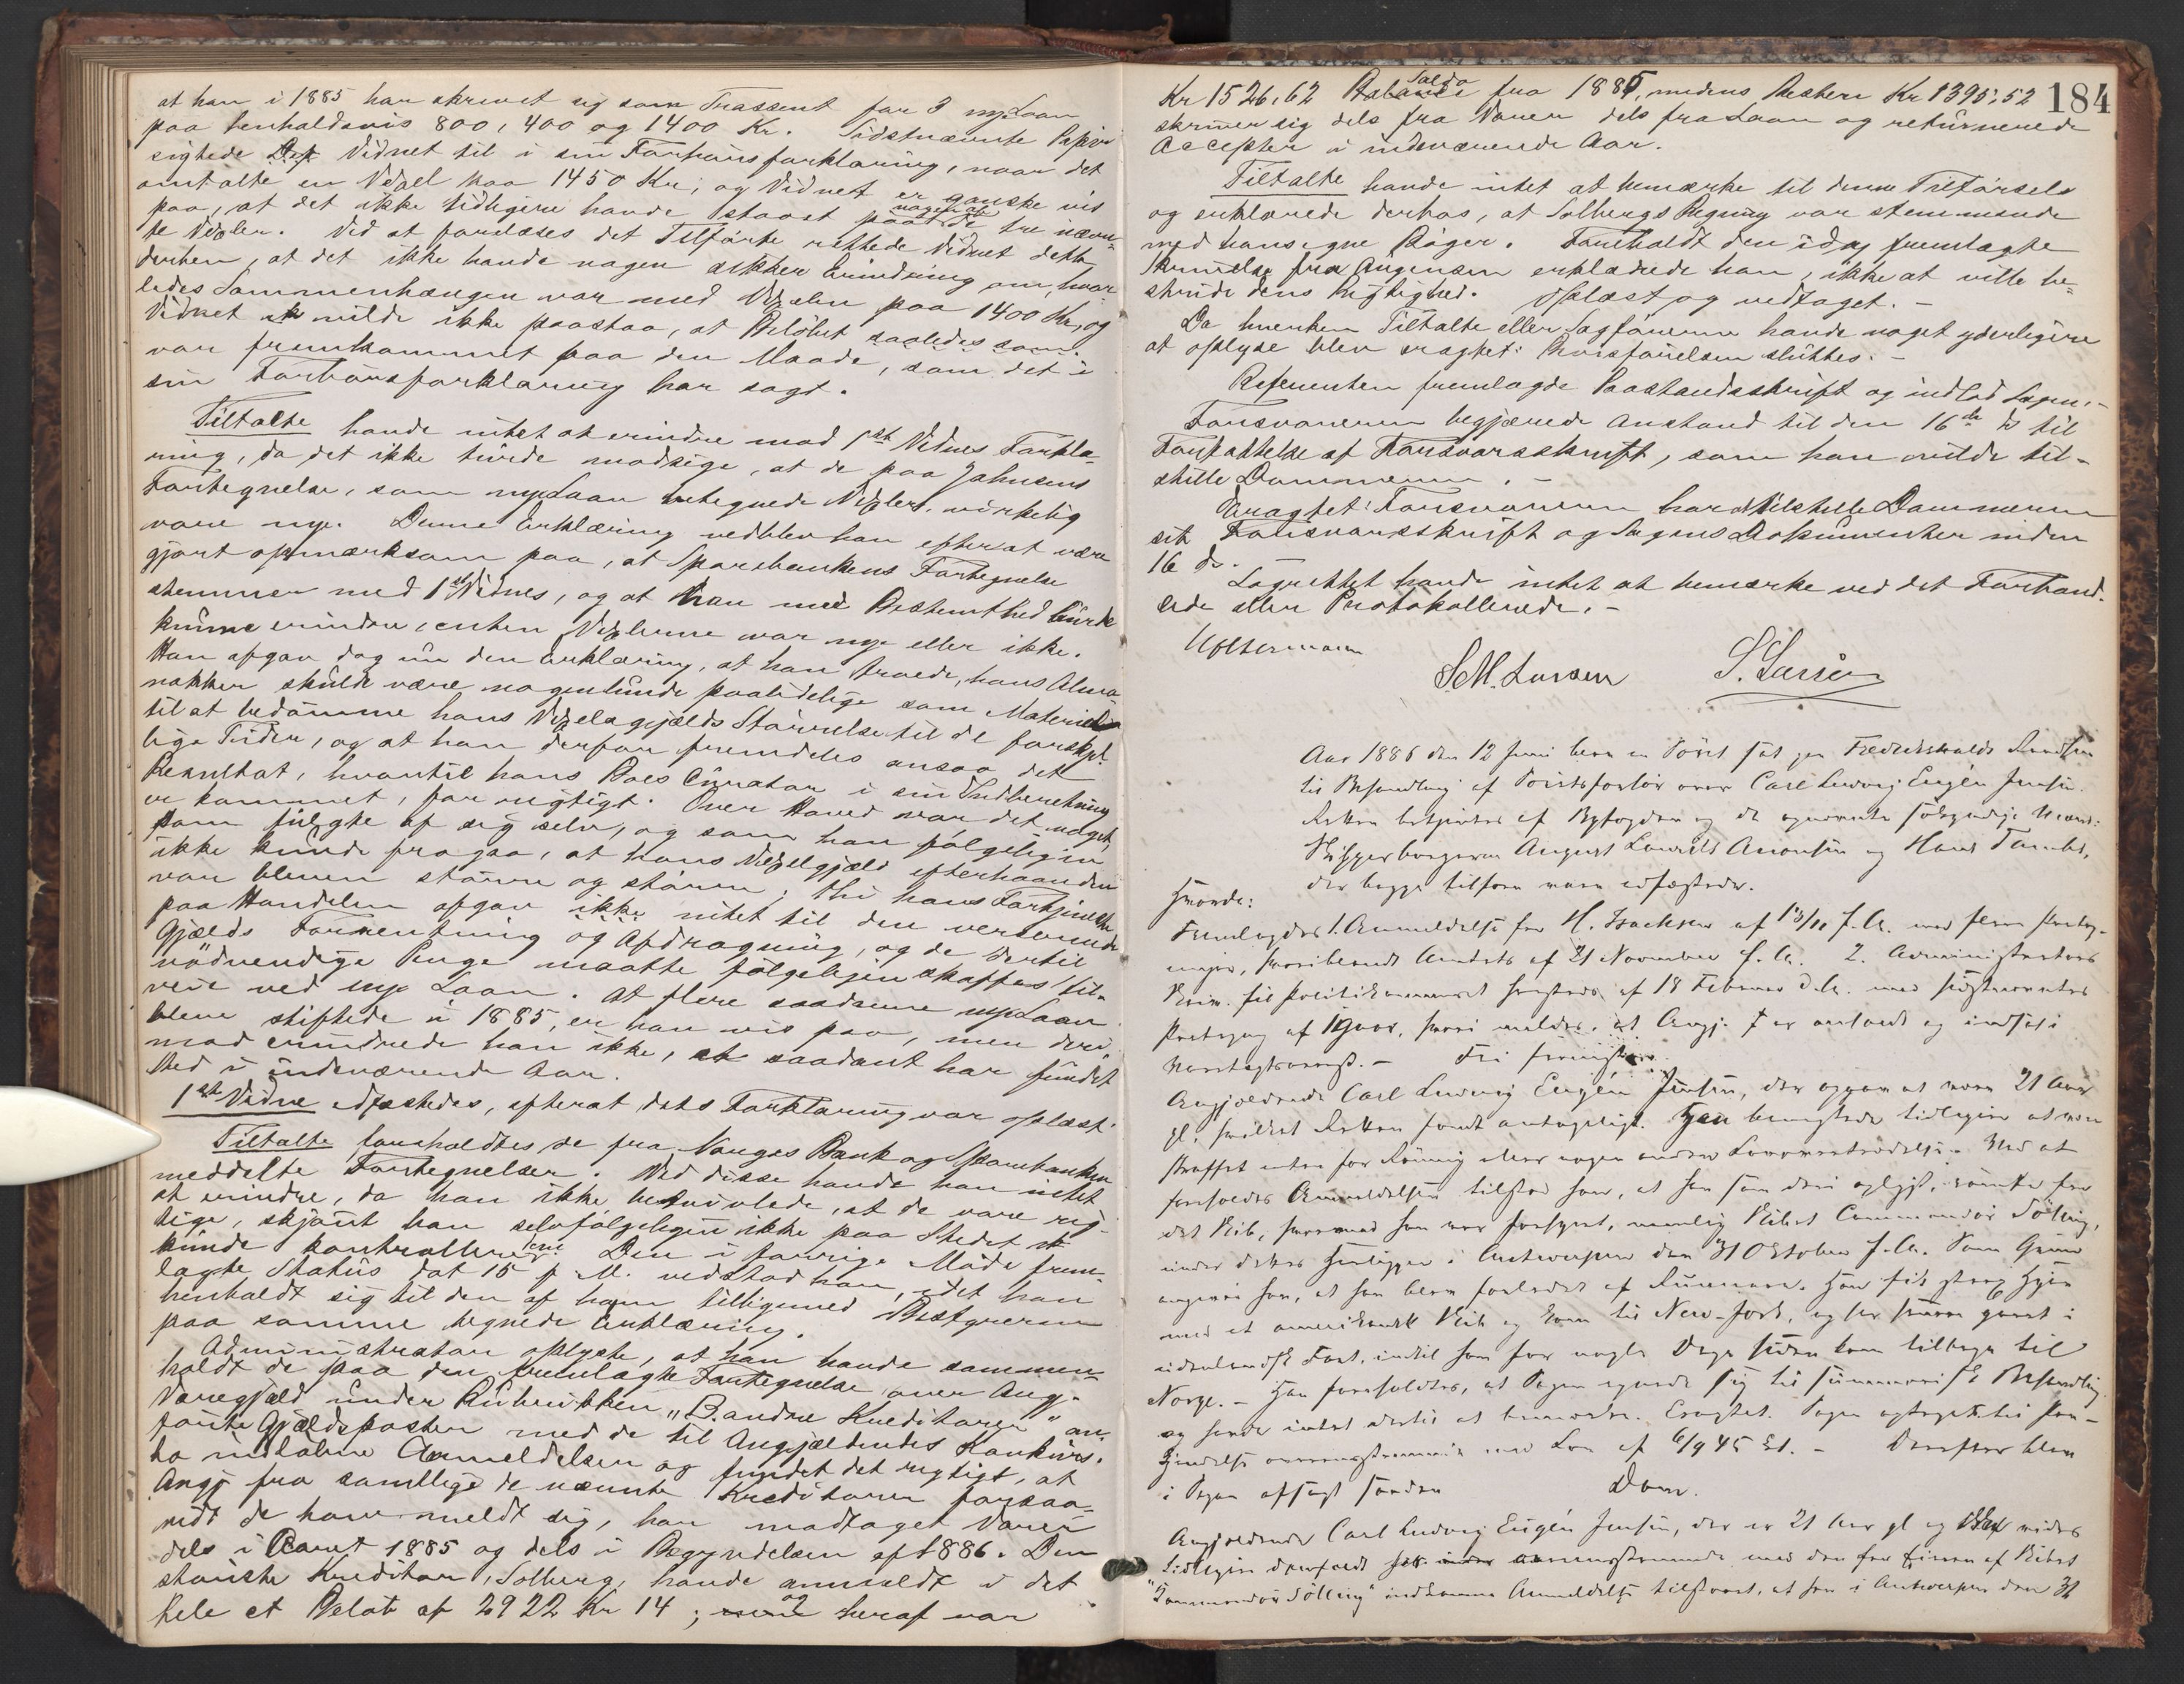 at han i 1885 har skrevet sig som Trassent for 3 nye Laan
paa henholdsvis 800, 400 og 1400 Kr. Sidstnævnte Papir
sigtede Vidnet til i sin Forhørsforklaring, naar det
omtalte en Vexel paa 1450 Kr; og Vidnet er ganske vis
paa, at det ikke tidligere havde staaet paa nogen af de tre nævn-
te Vexler. Ved at forelæses det Tilførte rettede Vidnet dette
derhen, at det ikke havde nogen sikker Erindring om, hvor-
ledes Sammenhængen var med Vexelen paa 1400 Kr, og
Vidnet vilde ikke paastaa, at Beløbet saaledes som
var fremkommet paa den Maade, som det i
sin Forhørsforklaring har sagt.
Tiltalte havde intet at erindre mod 1ste Vidnes Forkla-
ring, da det ikke turde modsige, at de paa Jahnsens
Fortegnelse, som nye Laan betegnede Vexler, virkelig
vare nye. Denne Erklæring vedblev han efter at være
gjort opmærksom paa, at Sparebankens Fortegnelse
stemmer med 1ste Vidnes, og at han med Bestemthed burde
kunne erindre, enten Vexlerne var nye eller ikke.
Han afgav dog nu den Erklæring, at han troede, hans Alma-
nakker skulde være nogenlunde paalidelige som Materiale
til at bedømme hans Vexelgjælds Størrelse til de forskjel-
lige Tider, og at han derfor fremdeles ansaa det
Resultat, hvortil hans Boes Curator i sin Indberetning
er kommet, for rigtigt. Over Hoved var det noget,
som fulgte af sig selv, og som han følgeligen
ikke kunde fragaa, at hans Vexelgjæld efterhaanden
var bleven større og større; thi hans Fortjeneste
paa Handelen afgav ikke intet til den verserende
Gjælds Forrentning og Afdragning, og de dertil
nødvendige Penge maatte følgeligen skaffes til-
veie ved nye Laan. At flere saadanne nye Laan
bleve stiftede i 1885, er han vis paa, men deri-
mod erindrede han ikke, at saadant har fundet
Sted i indeværende Aar.
1ste Vidne edfæstedes, efterat dets Forklaring var oplæst.
Tiltalte foreholdtes de fra Norges Bank og Sparebanken
meddelte Fortegnelser. Ved disse havde han intet
at erindre, da han ikke betvivlede, at de vare rig-
tige, skjønt han selvfølgeligen ikke paa Stedet
kunde kontrollere dem. Den i forrige Møde frem-
lagte Status dat 15 f. M. vedstod han, idet han
henholdt sig til den af ham tilligemed Bestyreren
paa samme tegnede Erklæring.
Administrator oplyste, at han havde sammen-
holdt de paa den fremlagte Fortegnelse over Ang.
Varegjæld under Rubrikken "B. andre Kreditorer" an-
førte Gjældsposter med de til Angjældendes Konkurs-
bo indløbne Anmeldelser og fundet det rigtigt, at
Angj fra samtlige de nævnte Kreditorer forsaa-
vidt de have meldt sig, har modtaget Varer
dels i Aaret 1885 og dels i Begyndelsen af 1886. Den
største Kreditor, Solberg, havde anmeldt i det
hele et Beløb af 2922 Kr 14; og heraf var
184
Kr 1526,62 Saldo fra 1885, medens Resten Kr 1395,52
skriver sig dels fra Varer dels fra Laan og returnerede
Accepter i indeværende Aar.
Tiltalte havde intet at bemærke til denne Tilførsel
og erklærede derhos, at Solbergs Regning var stemmende
med hans egne Bøger. Foreholdt den idag fremlagte
Skrivelse fra Augensen erklærede han, ikke at ville be-
stride dens Rigtighed. Oplæst og vedtaget. -
Da hverken Tiltalte eller Sagførerne havde noget yderligere
at oplyse blev eragtet: Bevisførelsen sluttes. -
Referenten fremlagde Paastandsskrift og indlod Sagen. -
Forsvareren begjærede Anstand til den 16de ds til
Forfattelse af Forsvarsskrift, som han vilde til-
stille Dommeren. -
Eragtet: Forsvareren har at tilstille Dommeren
sit Forsvarsskrift og Sagens Dokumenter inden
16 ds.
Lagrettet havde intet at bemærke ved det Forhand-
lede eller Protokollerede. -
S. M. Larsen S. Larsen
Aar 1886 den 12 Juni blev en Politiret sat paa Frederikshalds
til Behandling af Politiforhør over Carl Ludvig Eugén Jensen.
Retten betjentes af Byfogden og de opnævnte
August Lauritz Aronsen og Hans
der begge tilforn vare edfæstede.
Hvorda:
Fremlagdes 1. Anmeldelse fra H. Isachsen af 13/11 f. A. med flere Paateg-
ninger, af 21 November f. A. 2. Administrators
Skriv. til Politikammeret af 18 Februar d. A. med sidstnævntes
Paategning af Igaar, hvori meldes, at Angj. er anholdt og indsat i
Varetægtsarrest. - Fri fremstod
Angjældende Carl Ludvig Eugén Jensen, der opgav at være 21 Aar
gl. hvilket Retten fandt antageligt. Han benægtede tidligere at være
straffet enten for Rømning eller nogen anden Lovovertrædelse. Ved at
foreholdes Anmeldelsen tilstod han, at han som deri oplyst, rømte fra
det Skib, hvormed han var forhyret, nemlig Skibet Commandør Tølling,
under dettes Henliggen i Antwerpen den 31 Oktober f. A. Som Grund
angiver han, at han blev forledet af Runnere. Han fik strax Hyre
med et amerikansk Skib og kom til New-York, og har senere gaaet i
udenlandsk Fart, indtil han for nogle Dage siden kom tilbage til
Norge. - Han foreholdtes, at Sagen egnede sig til summarisk Behandling
og havde intet dertil at bemærke. Eragtet. Sagen optages til
Kjendelse overensstemmende med Lov af 6/9 45 §1. - Derefter blev
i Sagen afsagt saadan Dom.
Angjældende Carl Ludvig Eugén Jensen, der er 21 Aar gl og ikke vides
tidligere domfældt har overensstemmende med den fra Føreren af Skibet
"Commandør Tølling" indkomne Anmeldelse tilstaaet, at han i Antwerpen den 31